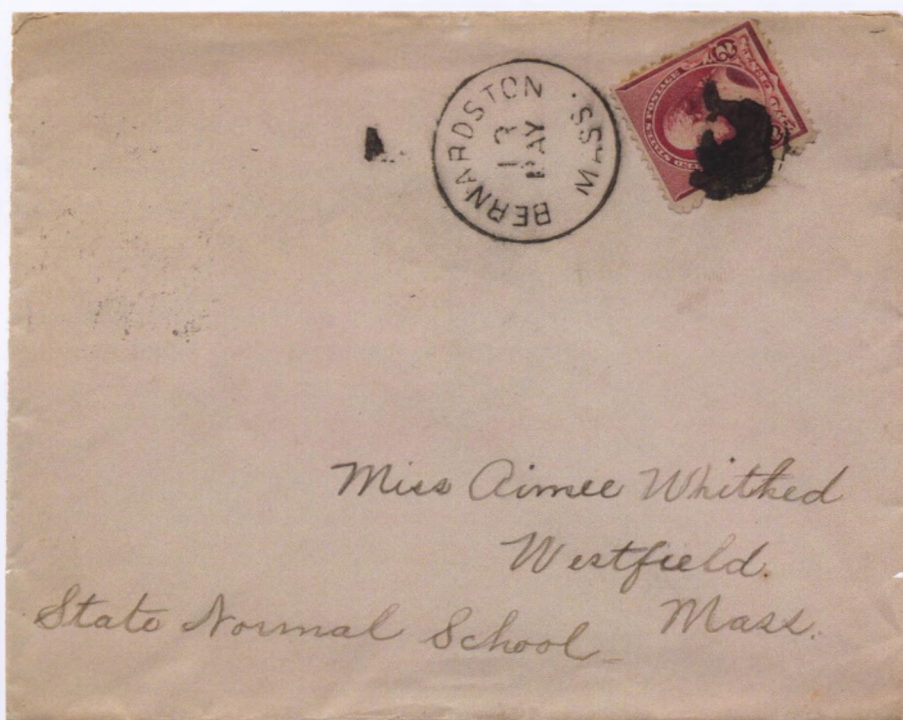 BERNARDSTON MASS.
13
MAY
STATES POSTAGE
2
Miss Aimee Whithed
Westfield.
Mass.
State Normal School